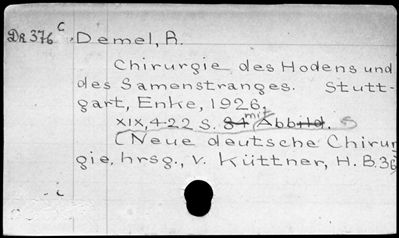 DR 376 c Demel, R.
Chirurgie des Hodens und
des Samenstranges. Stutt-
gart, Enke, 1926.
XIX, 422 S. 84 mit Abbild.
(Neue deutsche Chirur
gie, hrsg., v. Küttner, H. B.36